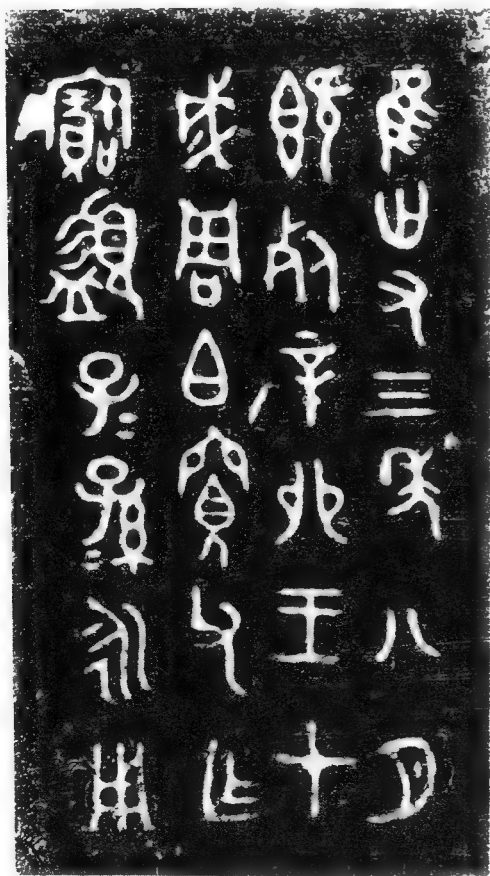 隹卅又三年八月
既死辛卯王才
成周白寬父乍
寶盨子=孫=永用